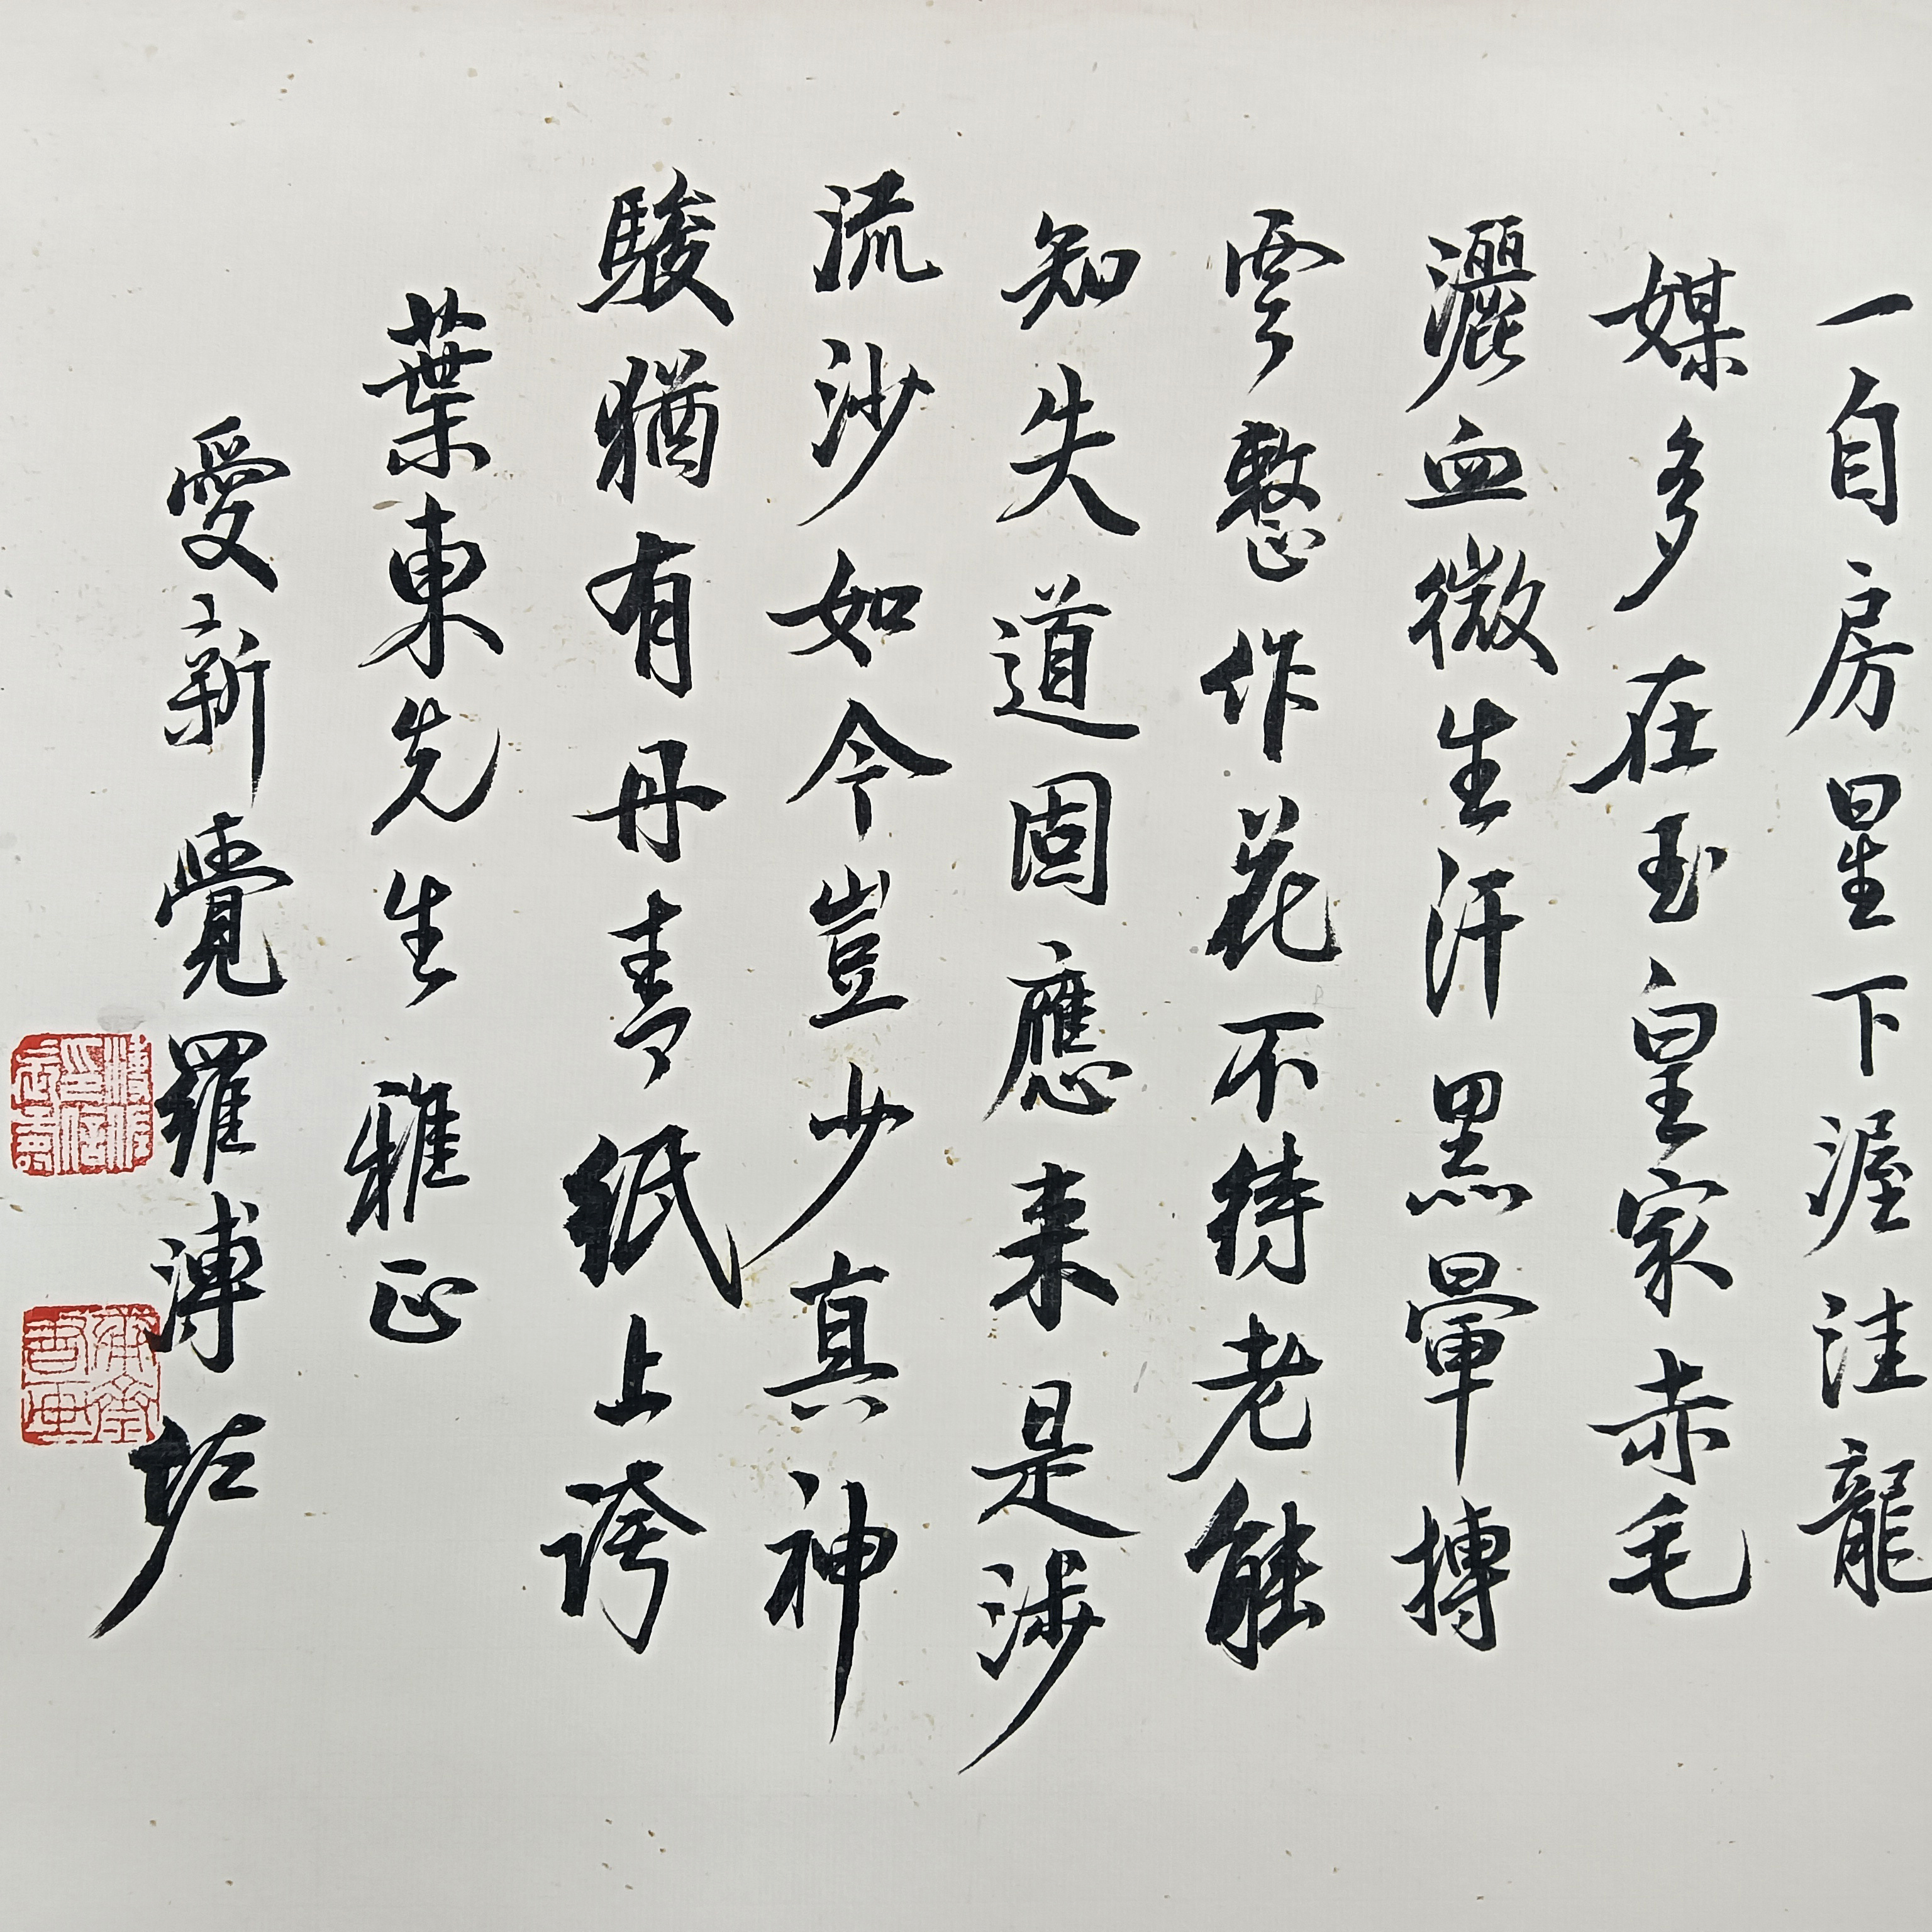 一自房星下渥洼龍
媒多在玉皇家赤毛
灑血微生汗黑暈搏
雲整作花不待老能
知失道固應来是涉
流沙如今豈少真神
駿猶有丹青紙上誇
葉東先生 雅正
愛新覺羅溥佐